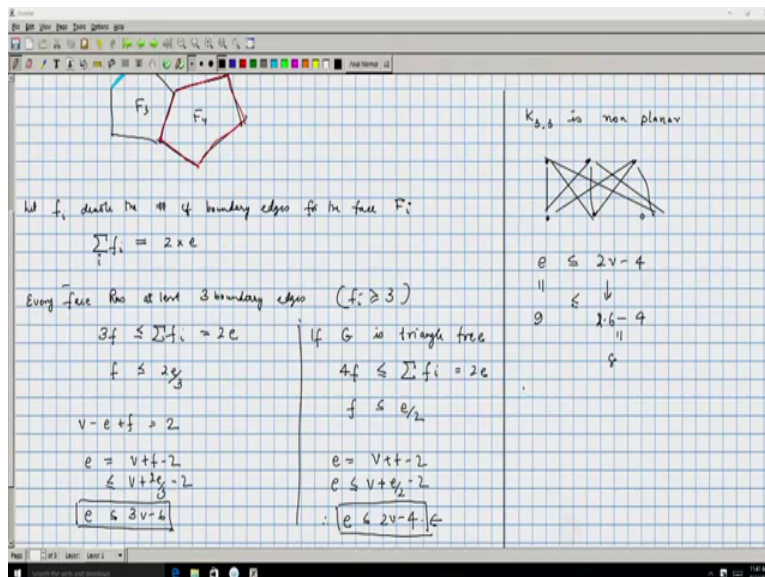 File Edit View Page Tools Options Help
F3
F4
Let fi denote the # of boundary edges for the face Fi
∑i fi = 2 × e
Every face has at least 3 boundary edges (fi ≥ 3)
3f ≤ ∑ fi = 2e
f ≤ 2e/3
v - e + f = 2
e = v + f - 2
≤ v + 2e/3 - 2
e ≤ 3v - 6
If G is triangle free
4f ≤ ∑ fi = 2e
f ≤ e/2
e = v + f - 2
e ≤ v + e/2 - 2
∴ e ≤ 2v - 4 ←
K3,3 is non planar
e ≤ 2v - 4
|| ≤ ↓
9 2·6 - 4
||
8
Page of 3 Layer: Layer 1
Search the web and Windows